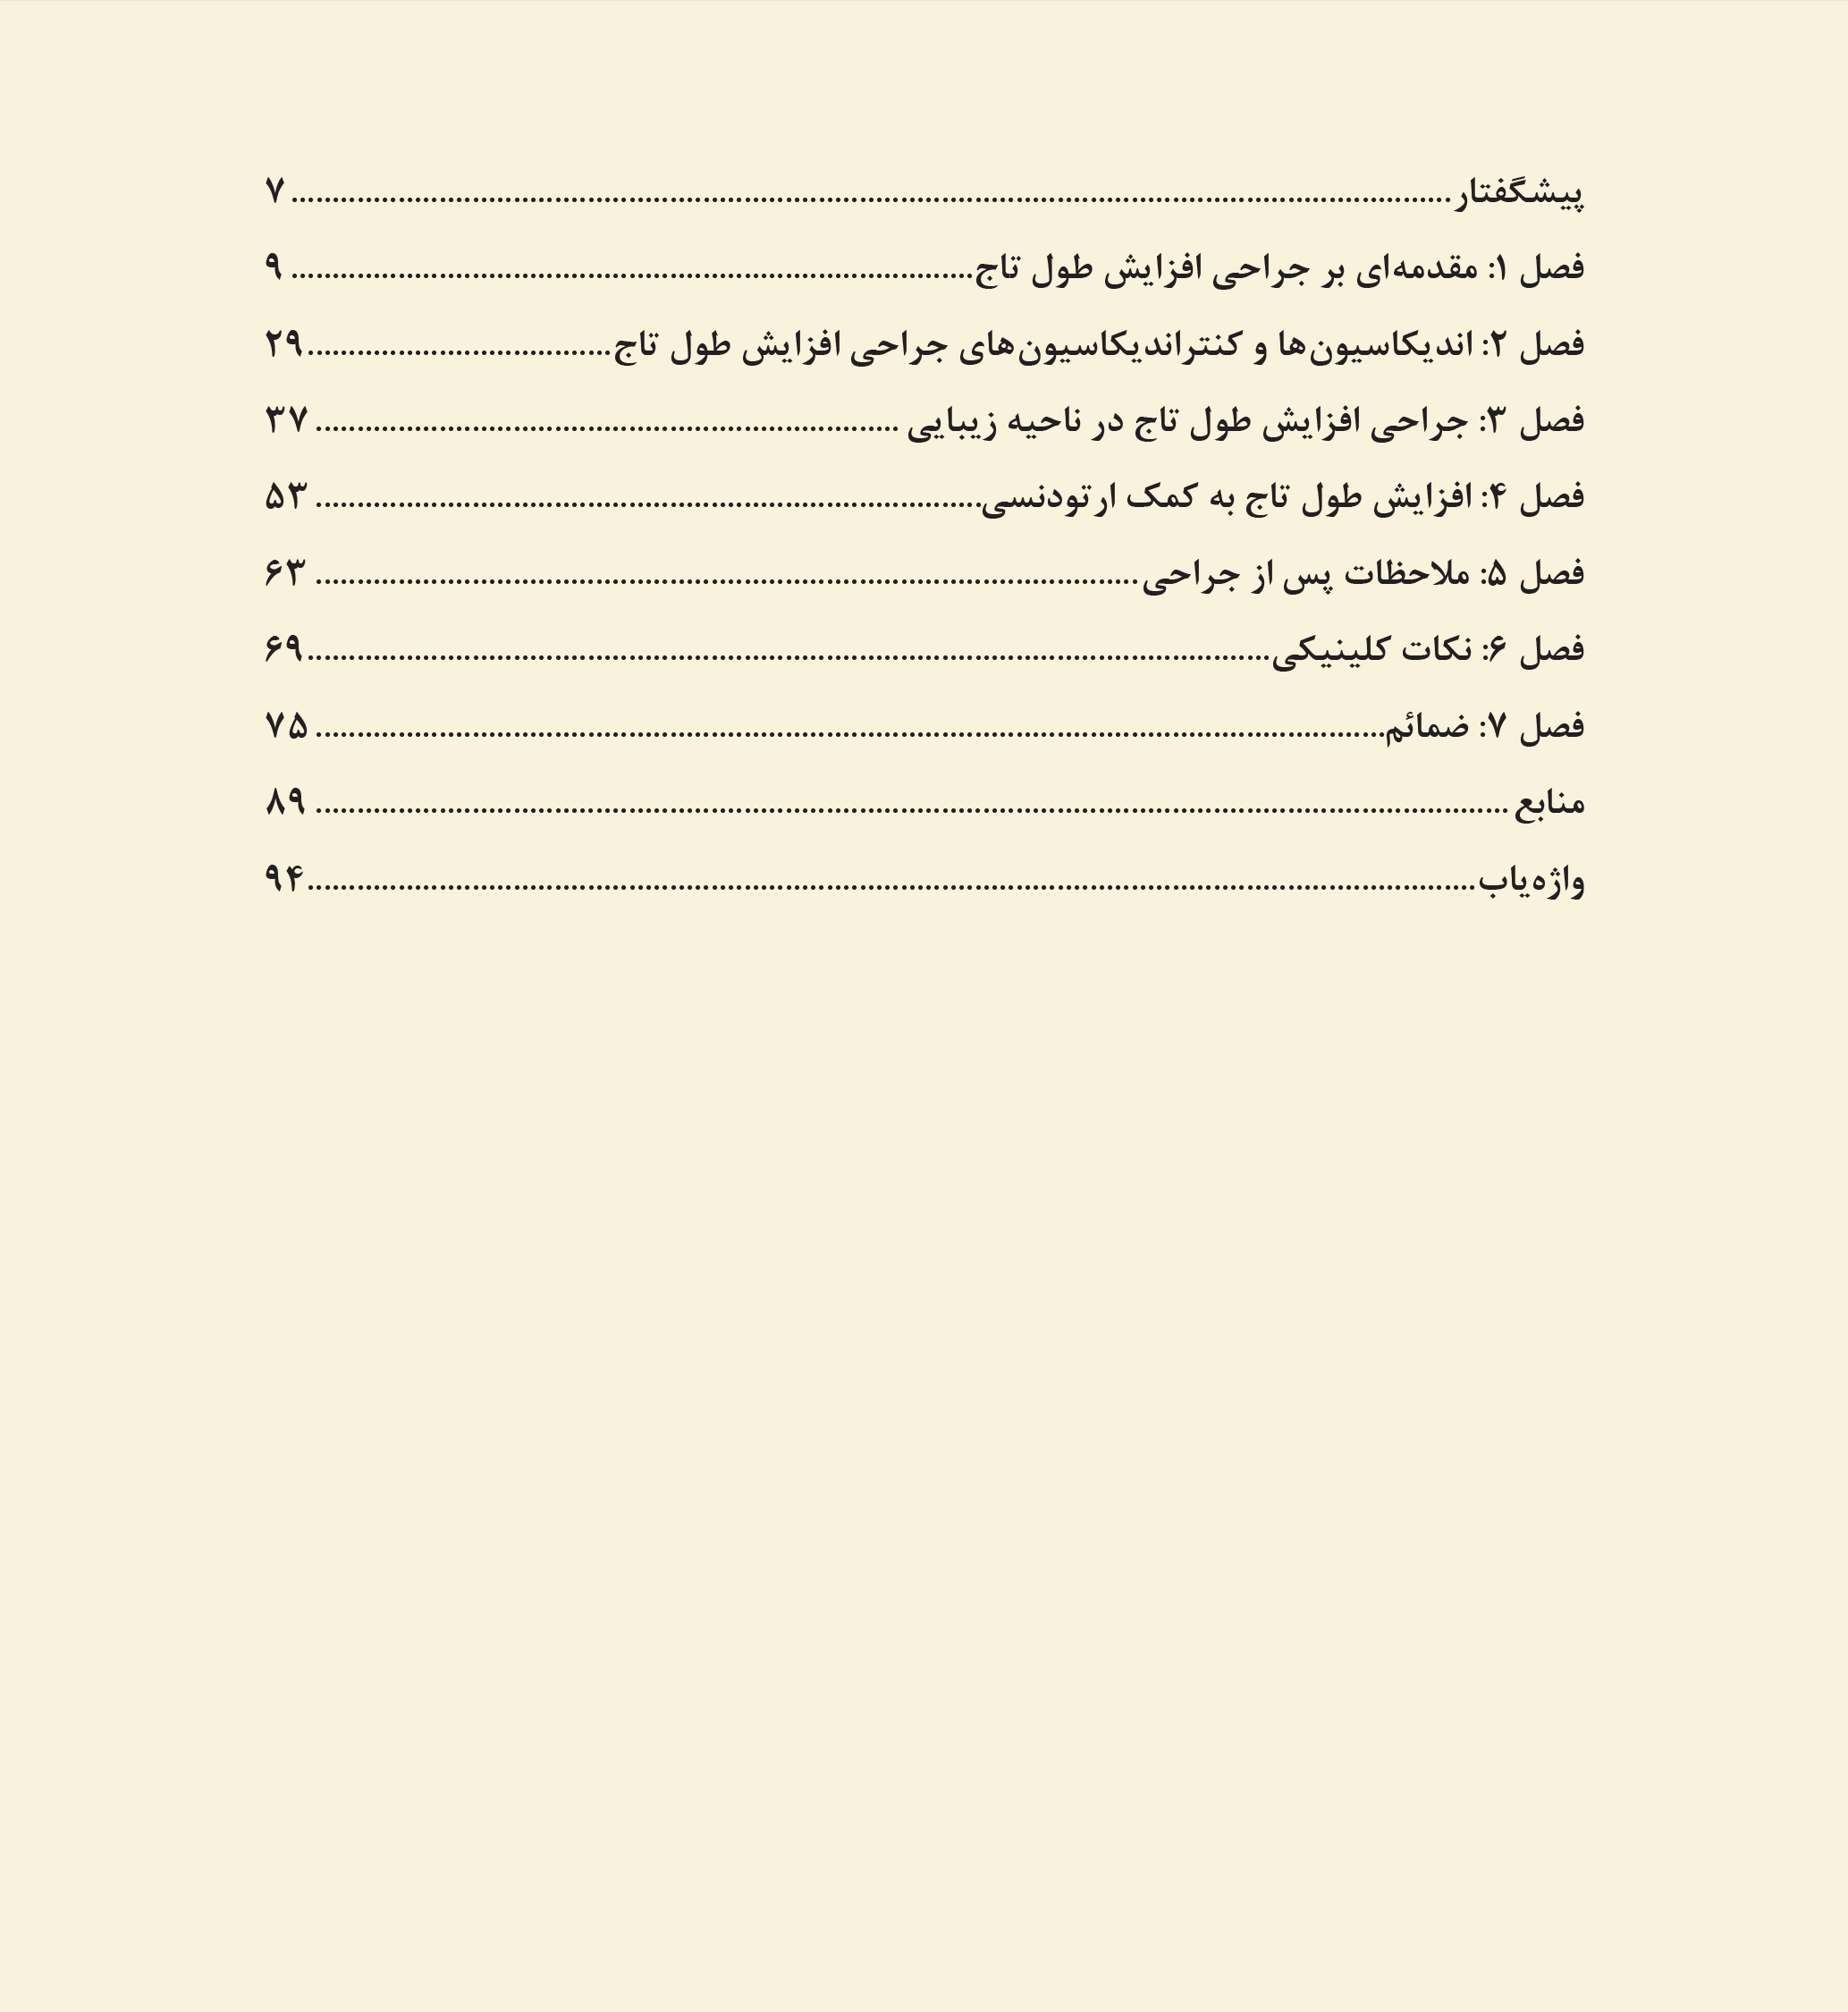 پیشگفتار.......................................................................................................................................... ۷
فصل ۱: مقدمه‌ای بر جراحی افزایش طول تاج................................................................................. ۹
فصل ۲: اندیکاسیون‌ها و کنتراندیکاسیون‌های جراحی افزایش طول تاج.....................................۲۹
فصل ۳: جراحی افزایش طول تاج در ناحیه زیبایی ...................................................................... ۳۷
فصل ۴: افزایش طول تاج به کمک ارتودنسی................................................................................ ۵۳
فصل ۵: ملاحظات پس از جراحی................................................................................................... ۶۳
فصل ۶: نکات کلینیکی....................................................................................................................۶۹
فصل ۷: ضمائم................................................................................................................................. ۷۵
منابع ................................................................................................................................................ ۸۹
واژه‌یاب.............................................................................................................................................۹۴